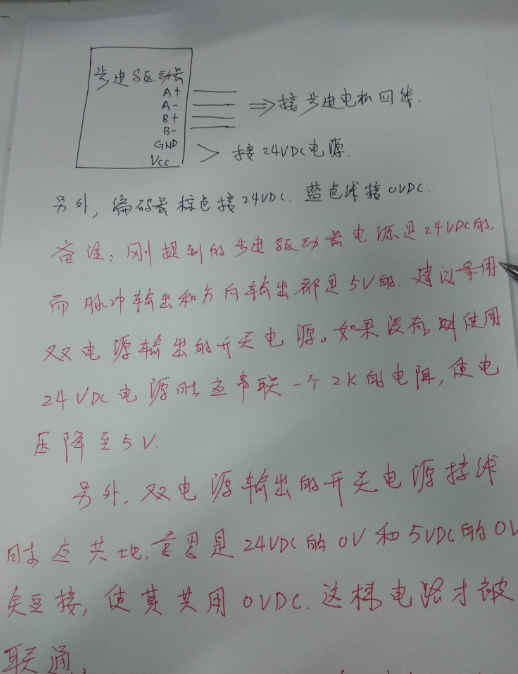 步进驱动器
A+
A-
B+
B-
⇒接步进电机四线.
GND
Vcc
> 接24VDC电源.
另外，编码器棕色接24VDC. 蓝色线接0VDC.
备注：刚提到的步进驱动器电源是24VDC的,
而脉冲输出和方向输出都是5V的. 建议采用
双电源输出的开关电源。如果没有则使用
24VDC电源时应串联一个2K的电阻，使电
压降至5V.
另外，双电源输出的开关电源接线
时应共地. 意思是24VDC的0V和5VDC的0V
短接，使其共用0VDC. 这样电路才被
联通.